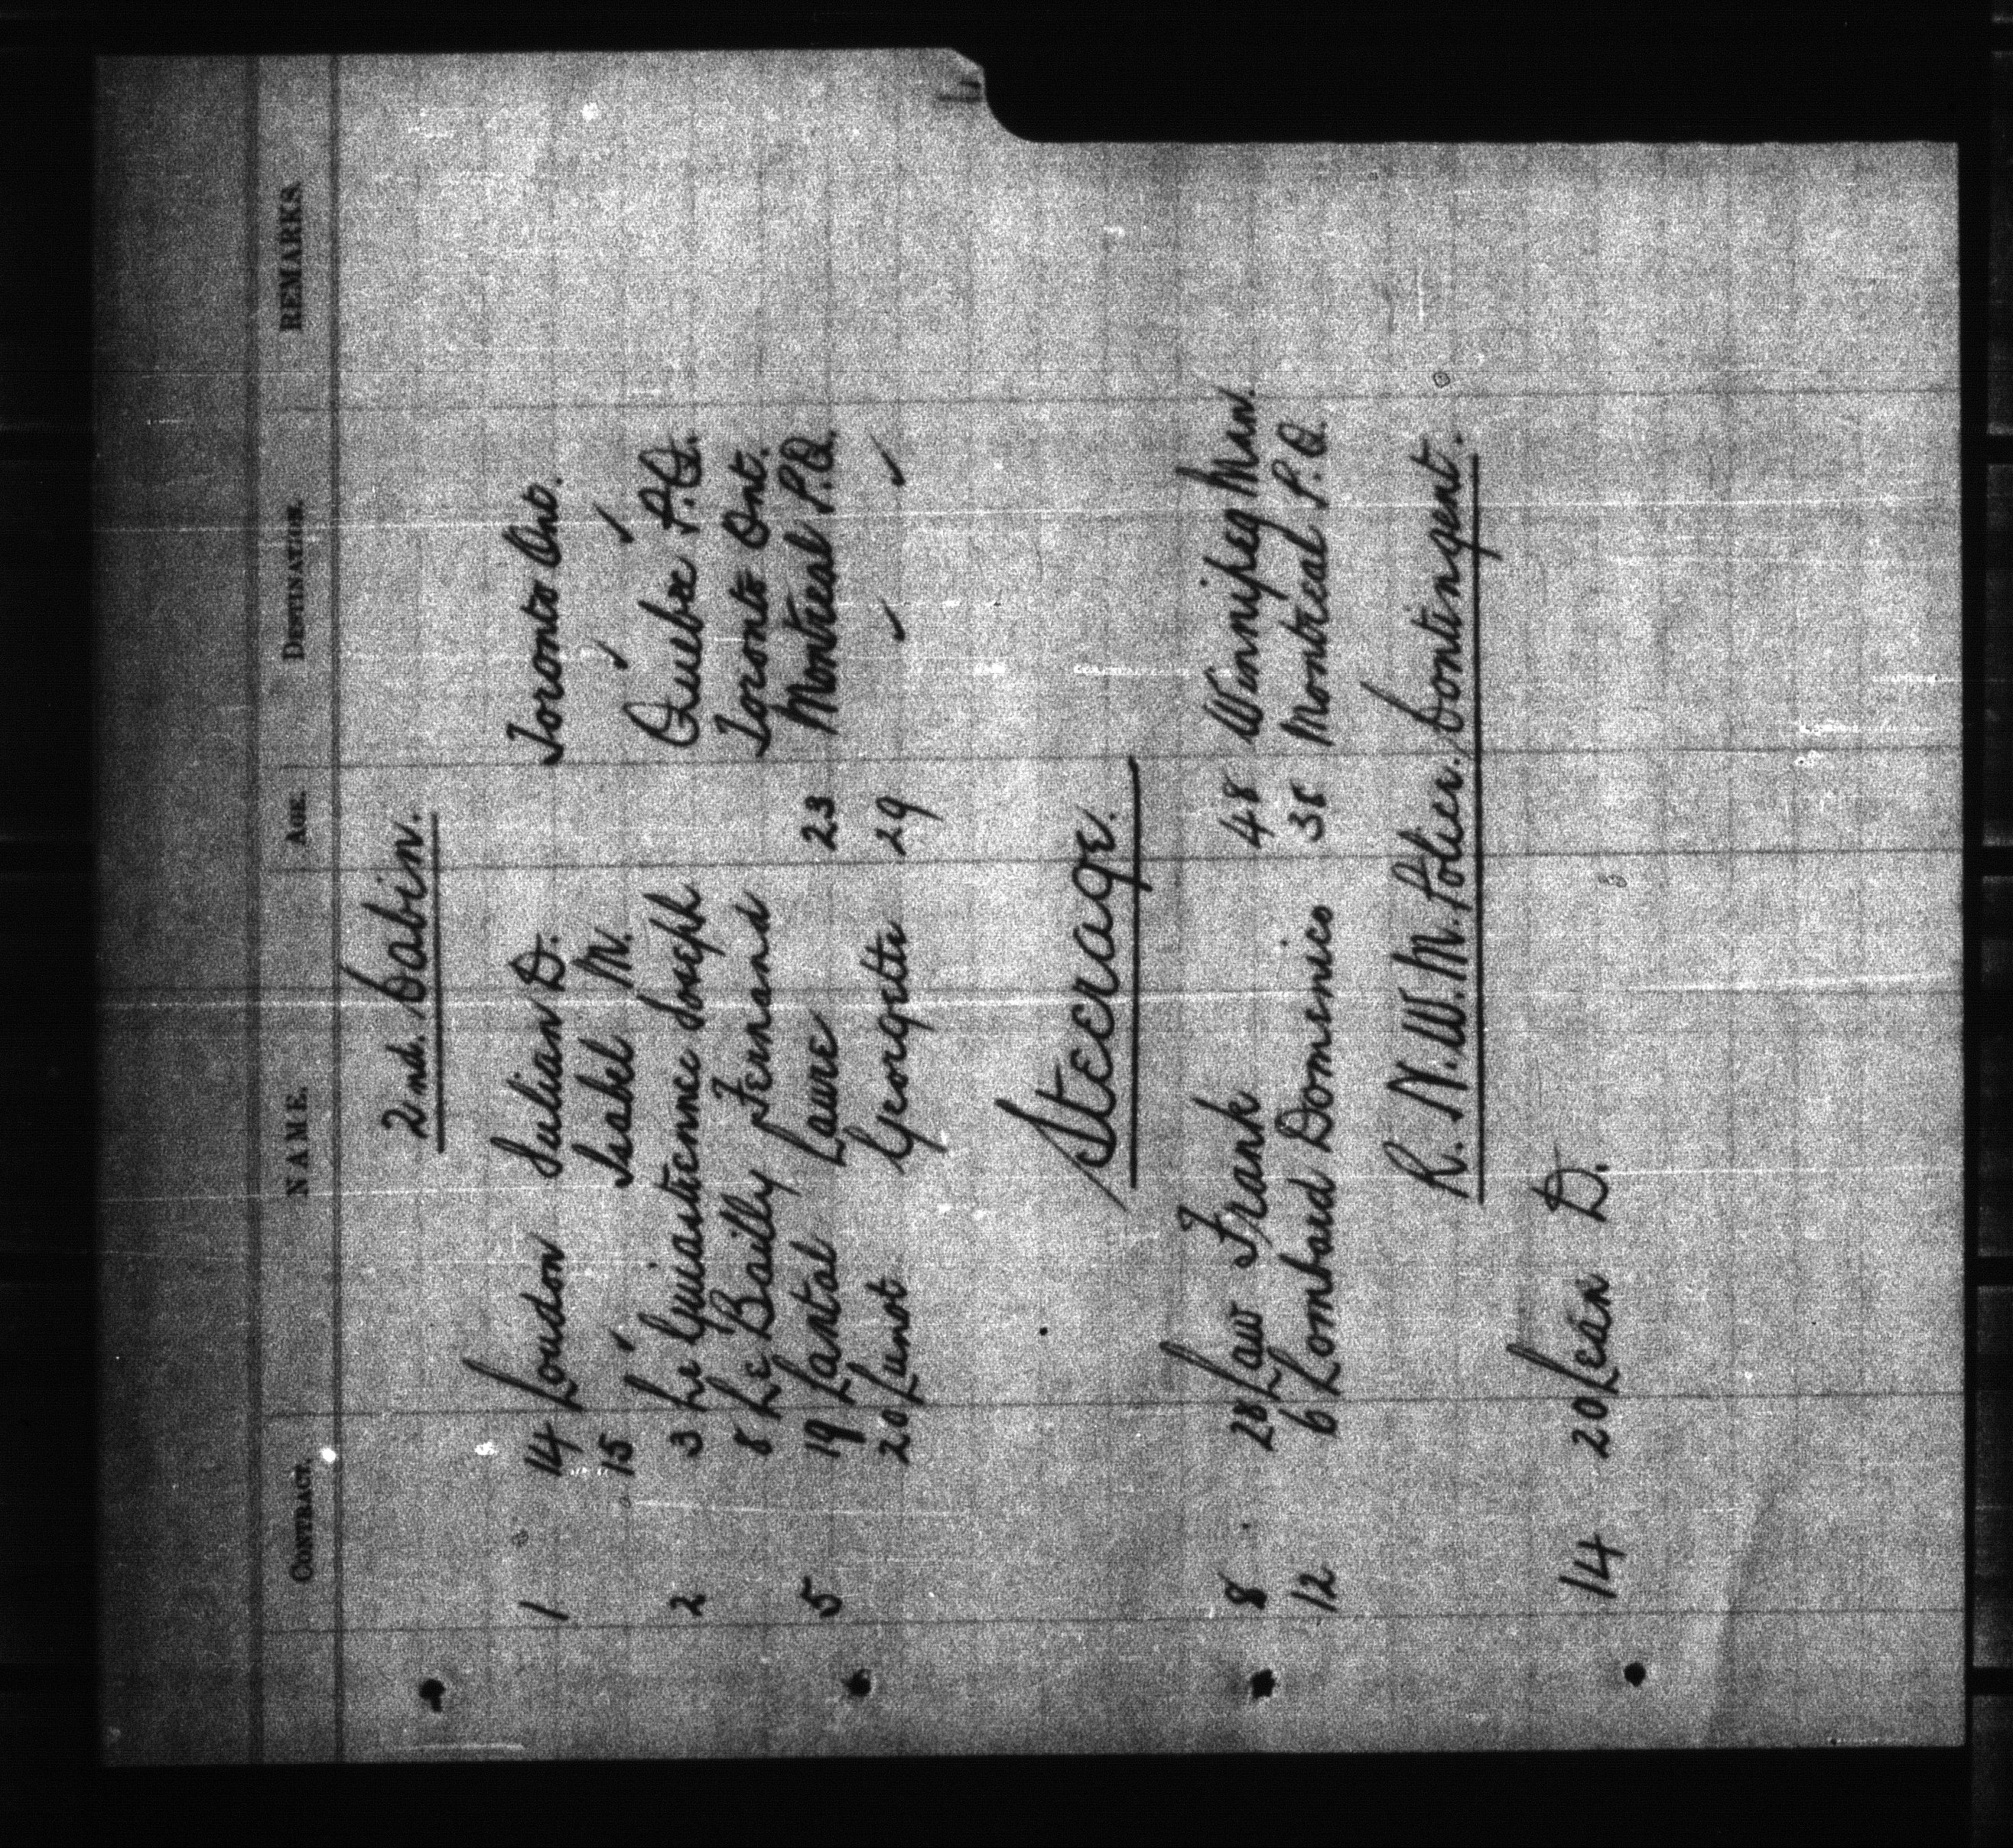 L
CONTRACT. NAME. AGE. DESTINATION. REMARKS.
2nd. Cabin.
1 14 Loudon Julian D. Toronto Ont.
15 " Isabel M. " "
2 3 Le Guiastiennec Joseph Quebec P.Q.
8 Le Bailly Fernand Toronto Ont.
5 19 Lantal Laure 23 Montreal P.Q.
20 Lunot Georgette 29 " "
Steerage.
8 28 Law Frank 48 Winnipeg Man.
12 6 Lombard Domenico 38 Montreal P.Q.
R.N.W.M. Police. Contingent.
14 20 Lean D.